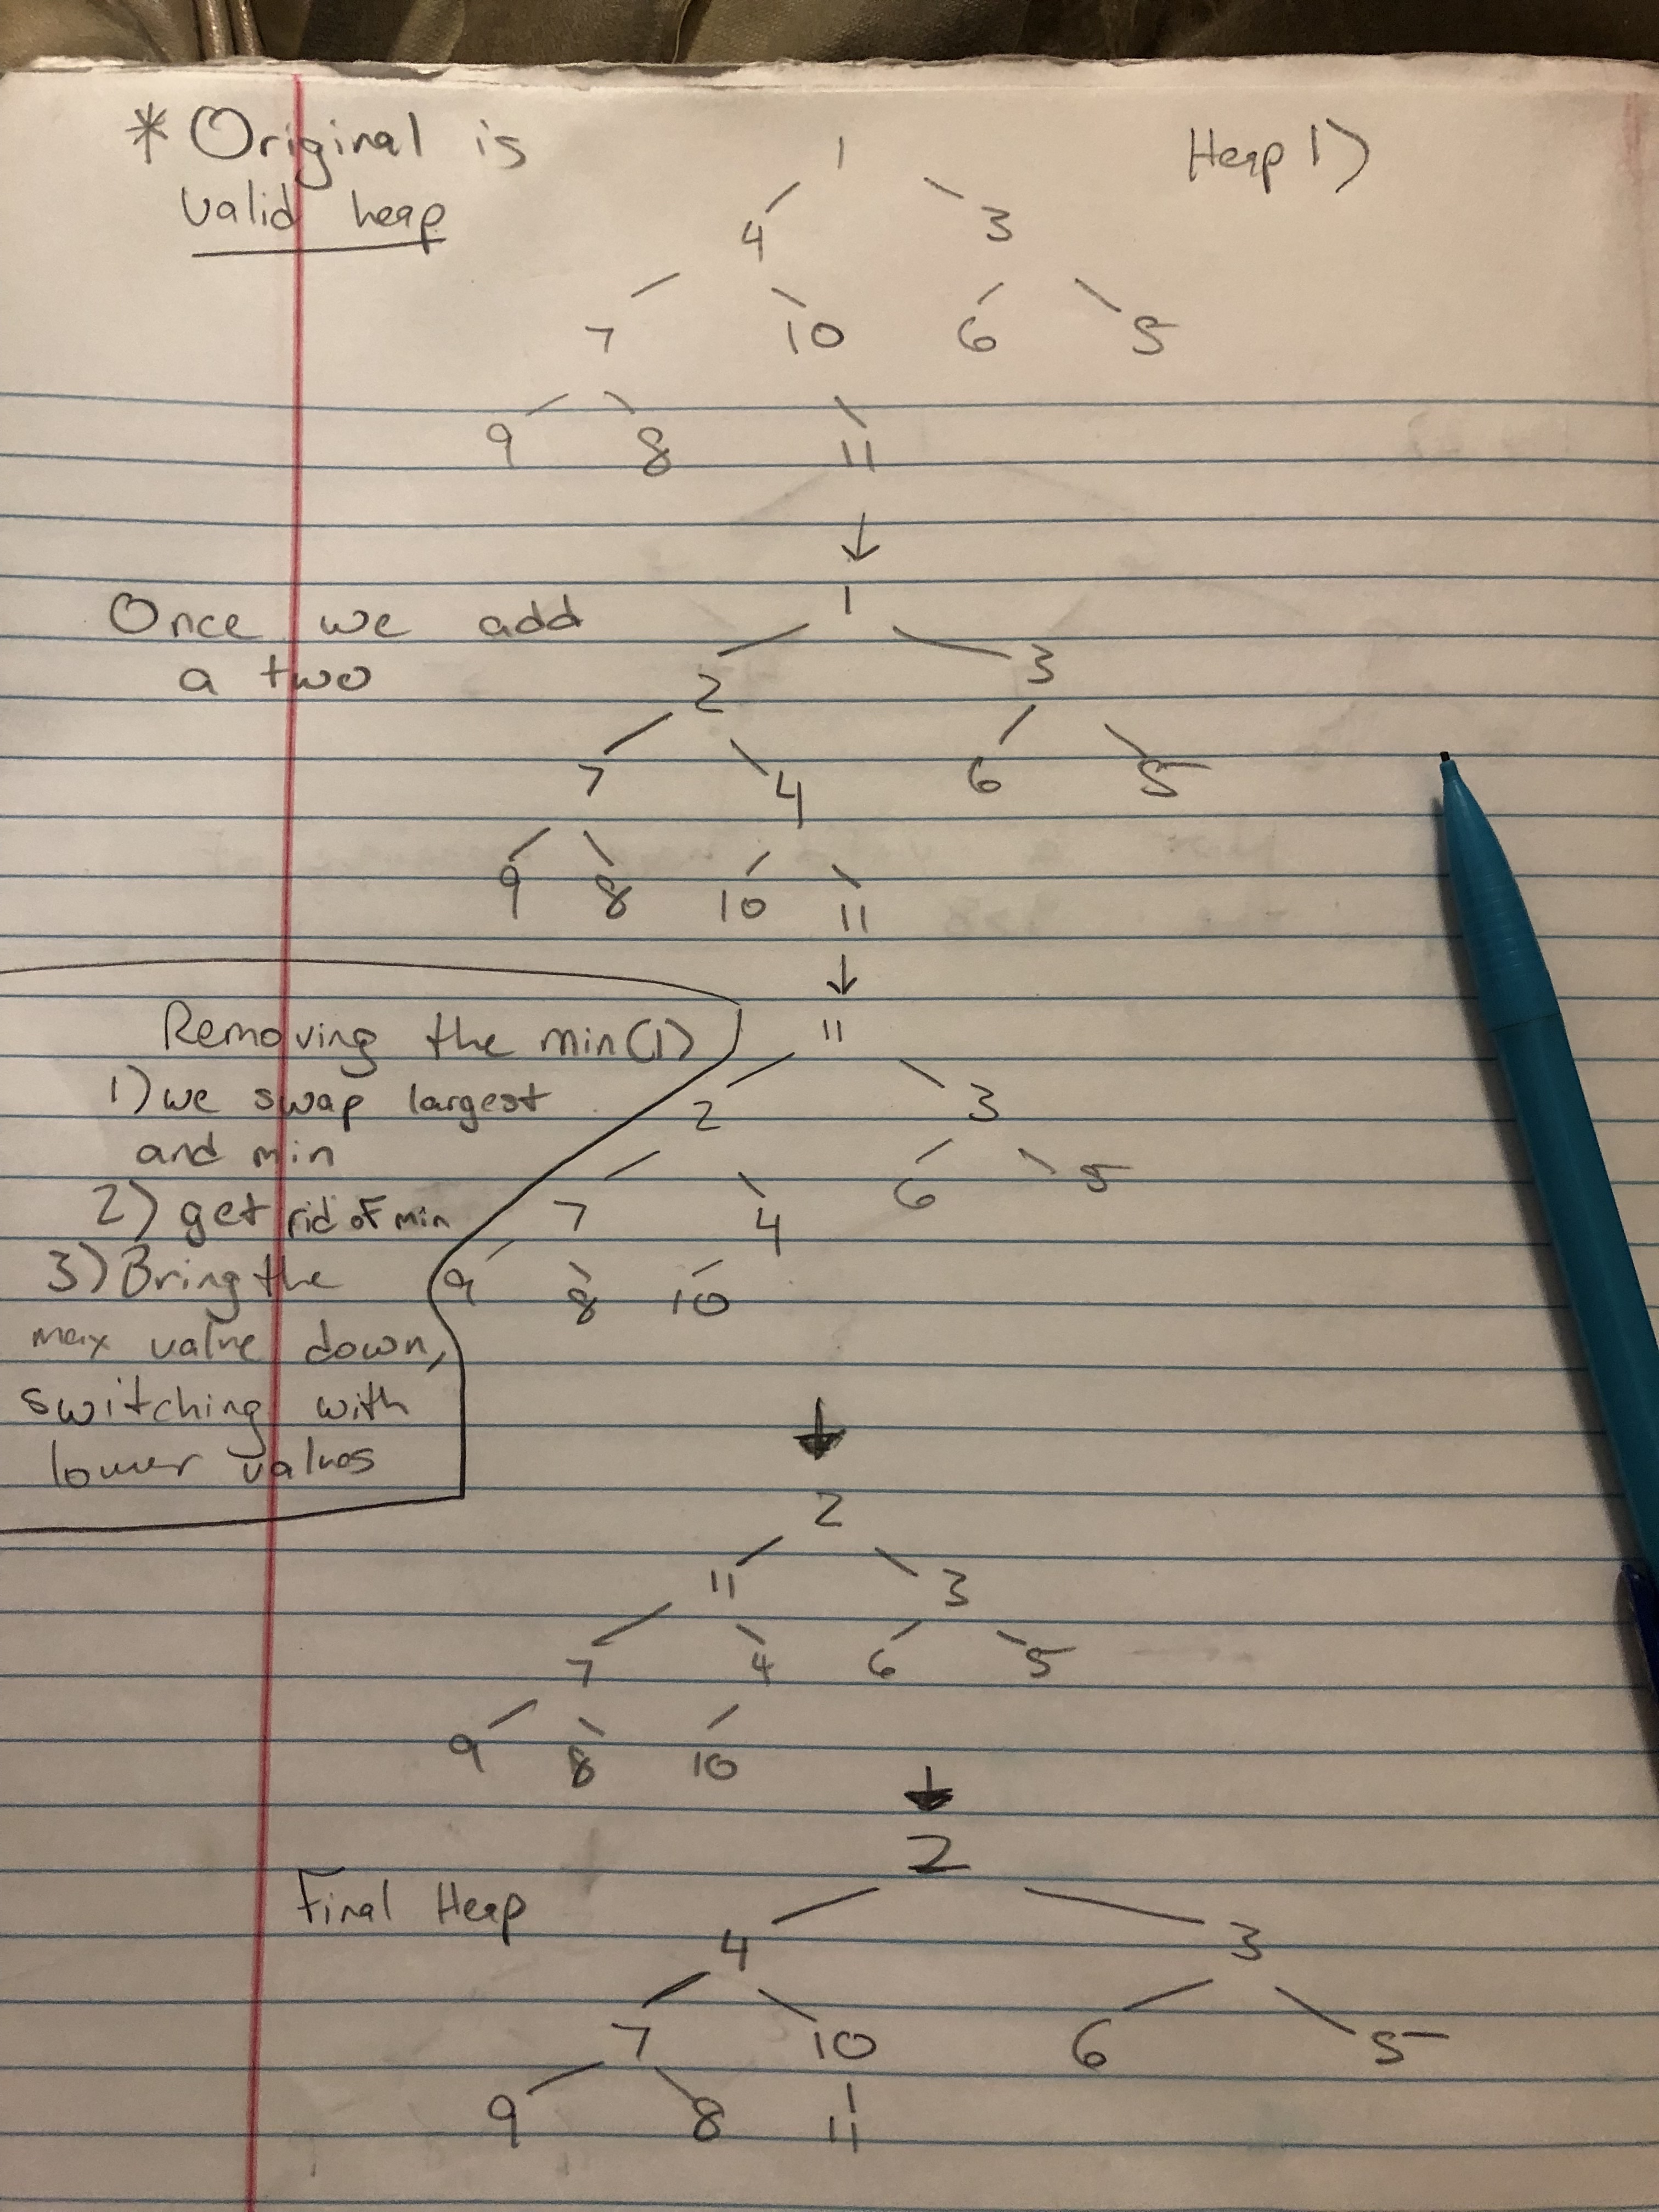 * Original is
valid heap
Heap 1)
1
4 3
7 10 6 5
9 8 11
Once we add
a two
1
2 3
7 4 6 5
9 8 10 11
Removing the min(1)
1) we swap largest
and min
2) get rid of min
3) Bring the
max value down,
switching with
lower values
11
2 3
7 4 6 5
9 8 10
2
11 3
7 4 6 5
9 8 10
Final Heap
2
4 3
7 10 6 5
9 8 11